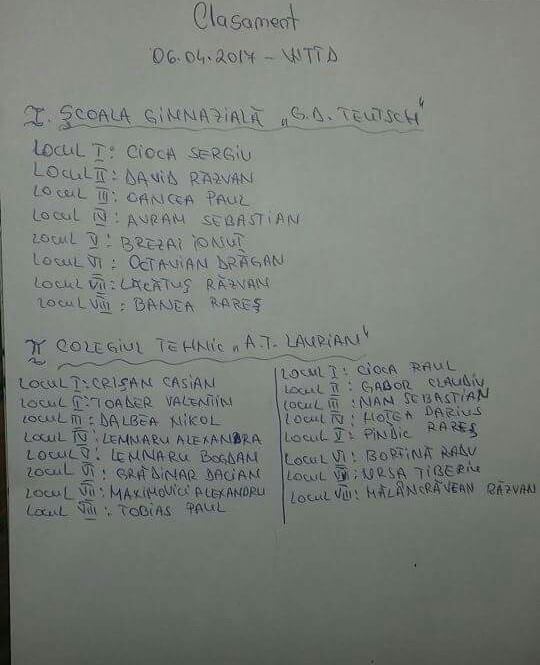 Clasament
06.04.2017 - WTTD
I. ȘCOALA GIMNAZIALĂ „G.D. TEUTSCH"
LOCUL I: CIOCA SERGIU
LOCUL II: DAVID RĂZVAN
LOCUL III: OANCEA PAUL
LOCUL IV: AVRAM SEBASTIAN
LOCUL V: BREZAI IONUȚ
LOCUL VI: OCTAVIAN DRĂGAN
LOCUL VII: LĂCĂTUȘ RĂZVAN
LOCUL VIII: BANEA RAREȘ
II COLEGIUL TEHNIC „A.T. LAURIAN"
LOCUL I: CRIȘAN CASIAN
LOCUL II: TOADER VALENTIN
LOCUL III: DALBEA NIKOL
LOCUL IV: LEMNARU ALEXANDRA
LOCUL V: LEMNARU BOGDAN
LOCUL VI: GRĂDINAR DACIAN
LOCUL VII: MAXIMOVICI ALEXANDRU
LOCUL VIII: TOBIAS PAUL
LOCUL I: CIOCA RAUL
LOCUL II: GABOR CLAUDIU
LOCUL III: NAN SEBASTIAN
LOCUL IV: HOȚEA DARIUS
LOCUL V: PINDIC RAREȘ
LOCUL VI: BORTINĂ RADU
LOCUL VII: URSA TIBERIU
LOCUL VIII: MĂLÂNCRĂVEAN RĂZVAN